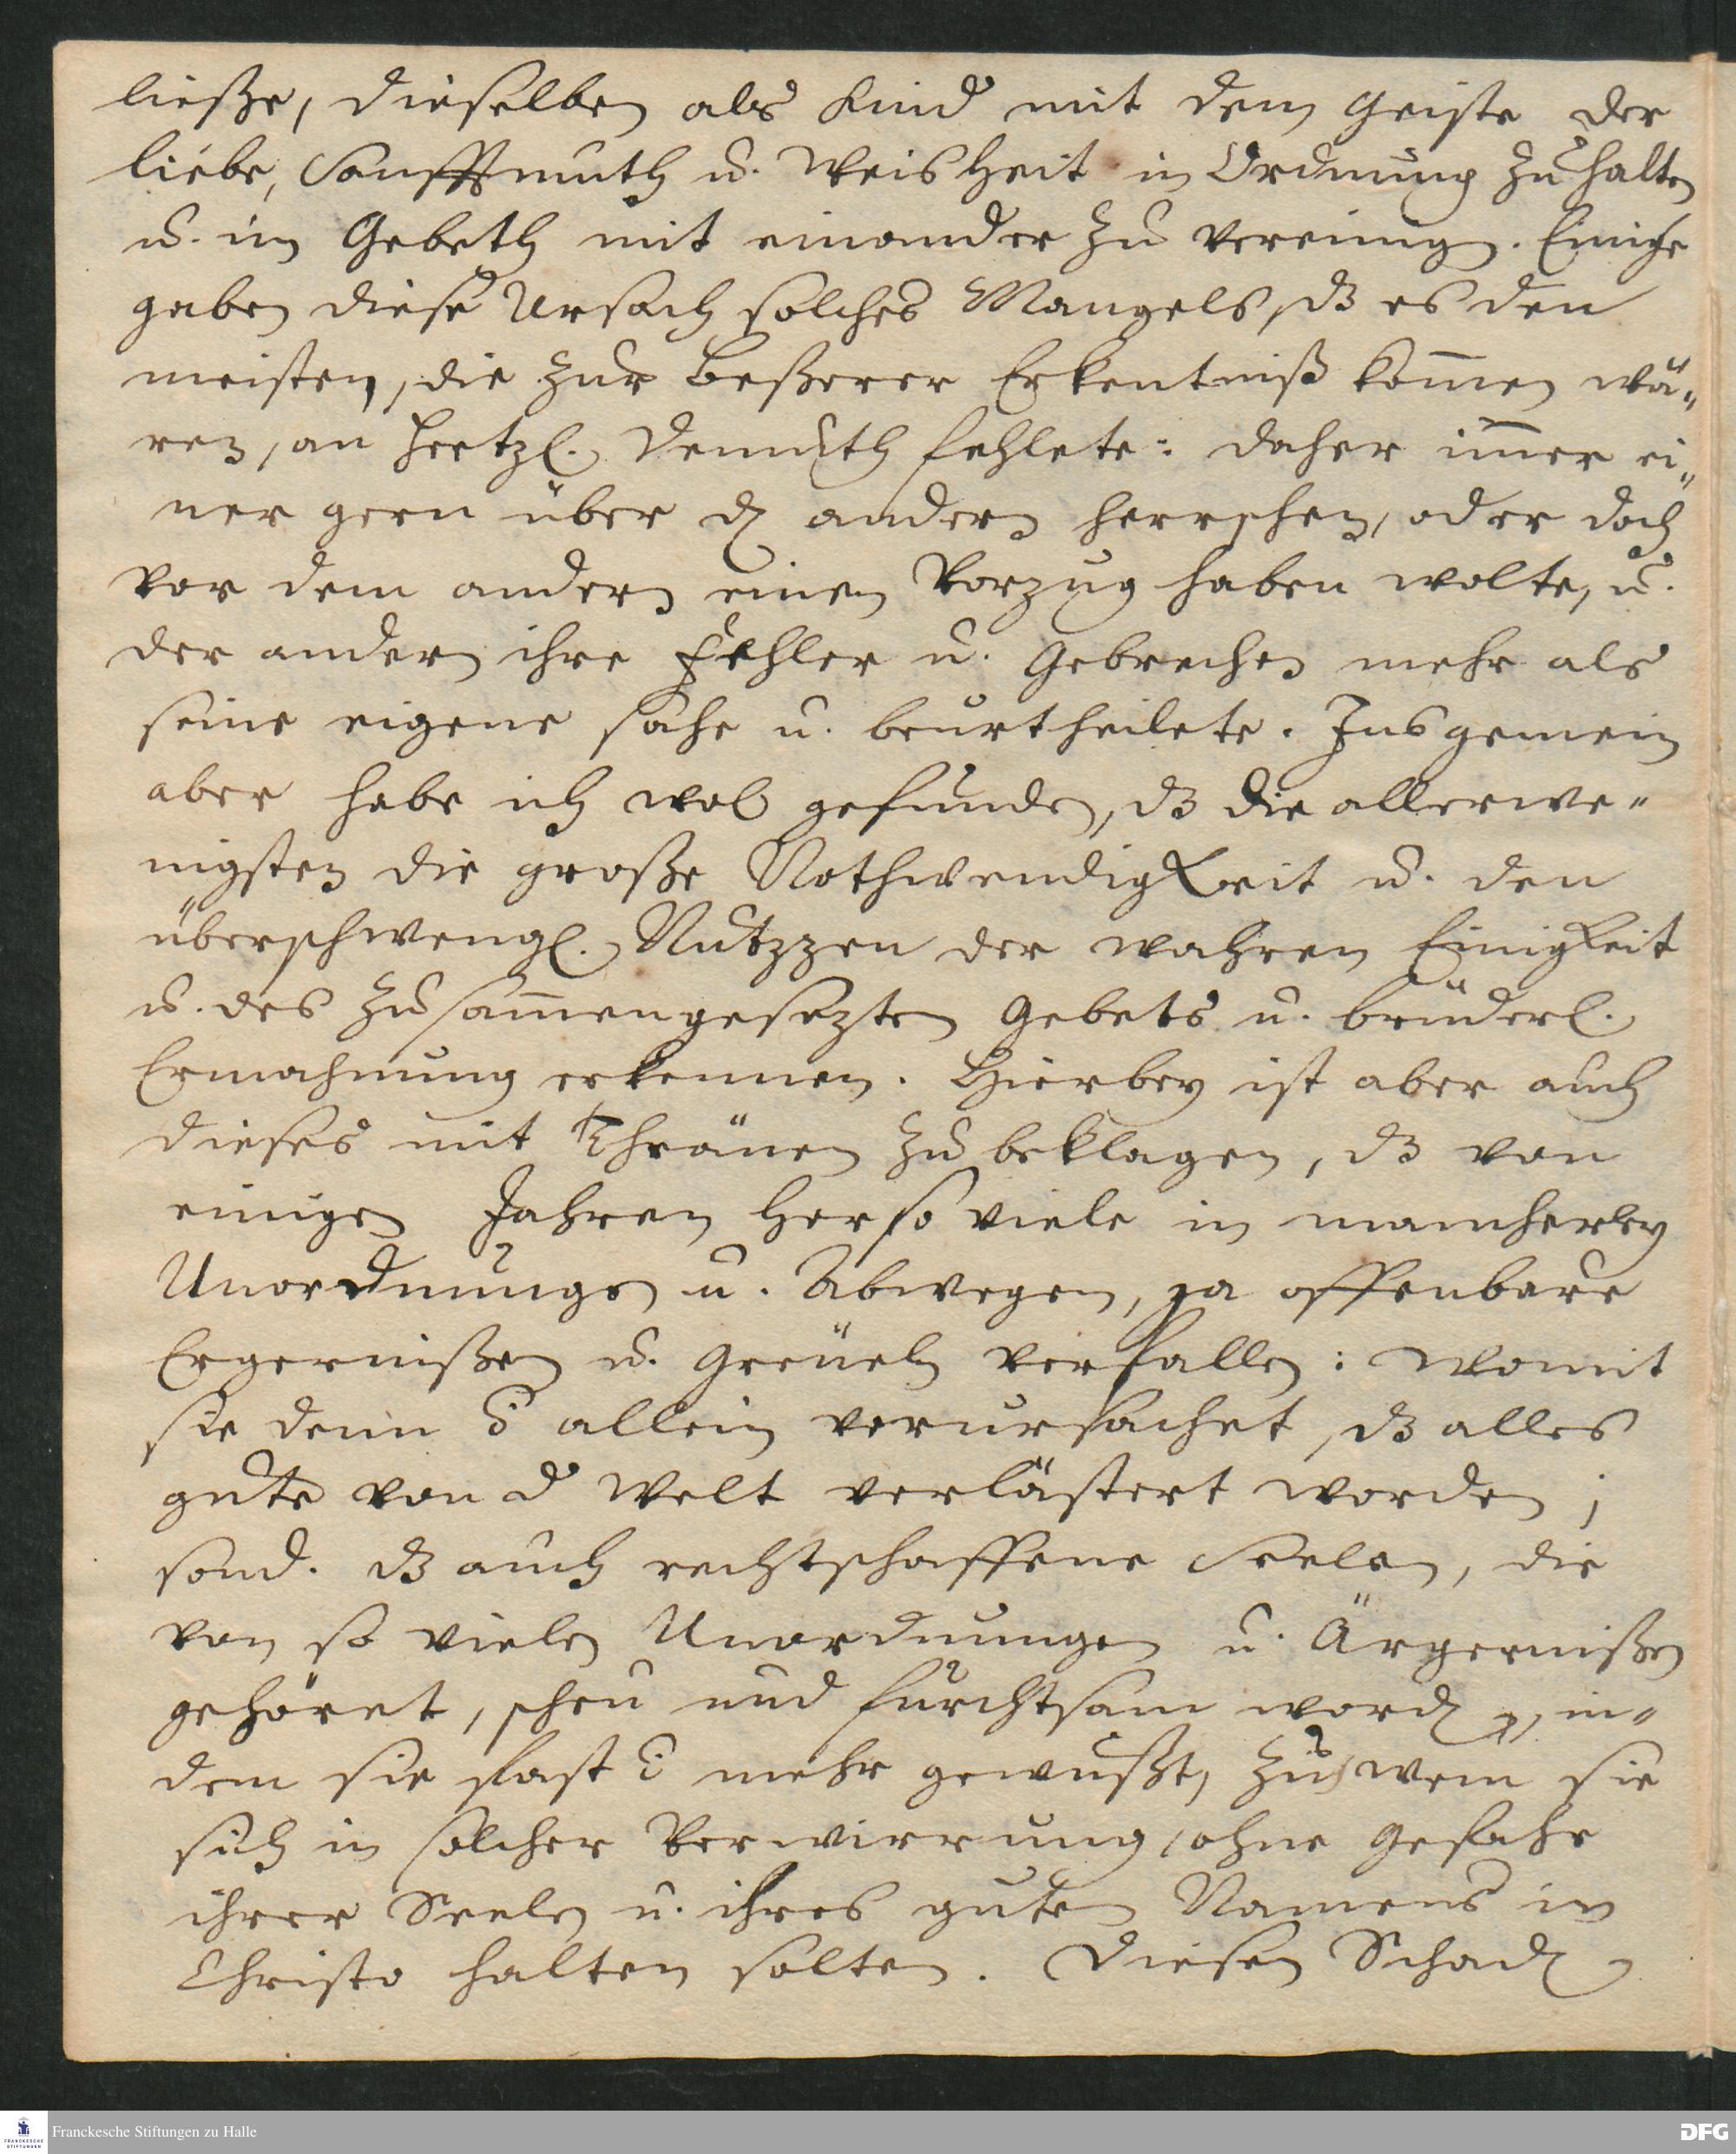 ließe, dieselben als Kind mit dem Geiste der
liebe, Sanfftmuth u. Weisheit in Ordnung zu halten
u. im Gebeth mit einander zu vereinigen. Einige
gaben diese Ursach solches Mangels, dß es den
meisten, die zur beßerer Erkentniß kom̅en wä-
ren, an hertzl. Demuth fehlete: daher im̅er ei-
ner gern über d andern herrschen, oder doch
vor dem andern einen Vorzug haben wolte, u.
der andern ihre Fehler u. Gebrechen mehr als
seine eigene sahe u. beurtheilete. Ins gemein
aber habe ich wol gefunden, dß die allerwe-
nigsten die große Nothwendigkeit u. den
überschwengl. Nutzzen der wahren Einigkeit
u. des zusam̅engesezten Gebets u. brüderl.
Ermahnung erkennen. Hierbey ist aber auch
dieses mit Thränen zu beklagen, dß von
einigen Jahren her so viele in mancherley
Unordnungen u. Abwegen, ja offenbare
Ergernißen u. Greüeln verfallen: womit
sie denn allein verursachet, dß alles
gute von d Welt verlästert worden;
sond. dß auch rechtschaffene Seelen, die
von so vielen Unordnungen u. Ärgernißen
gehöret, scheu und furchtsam word, in-
dem sie fast mehr gewußt, zu wem sie
sich in solcher Verwirrung, ohne Gefahr
ihrer Seelen u. ihres guten Namens in
Christo halten solten. Diesen Schad
Franckesche Stiftungen zu Halle
FRANCKESCHE STIFTUNGEN
DFG